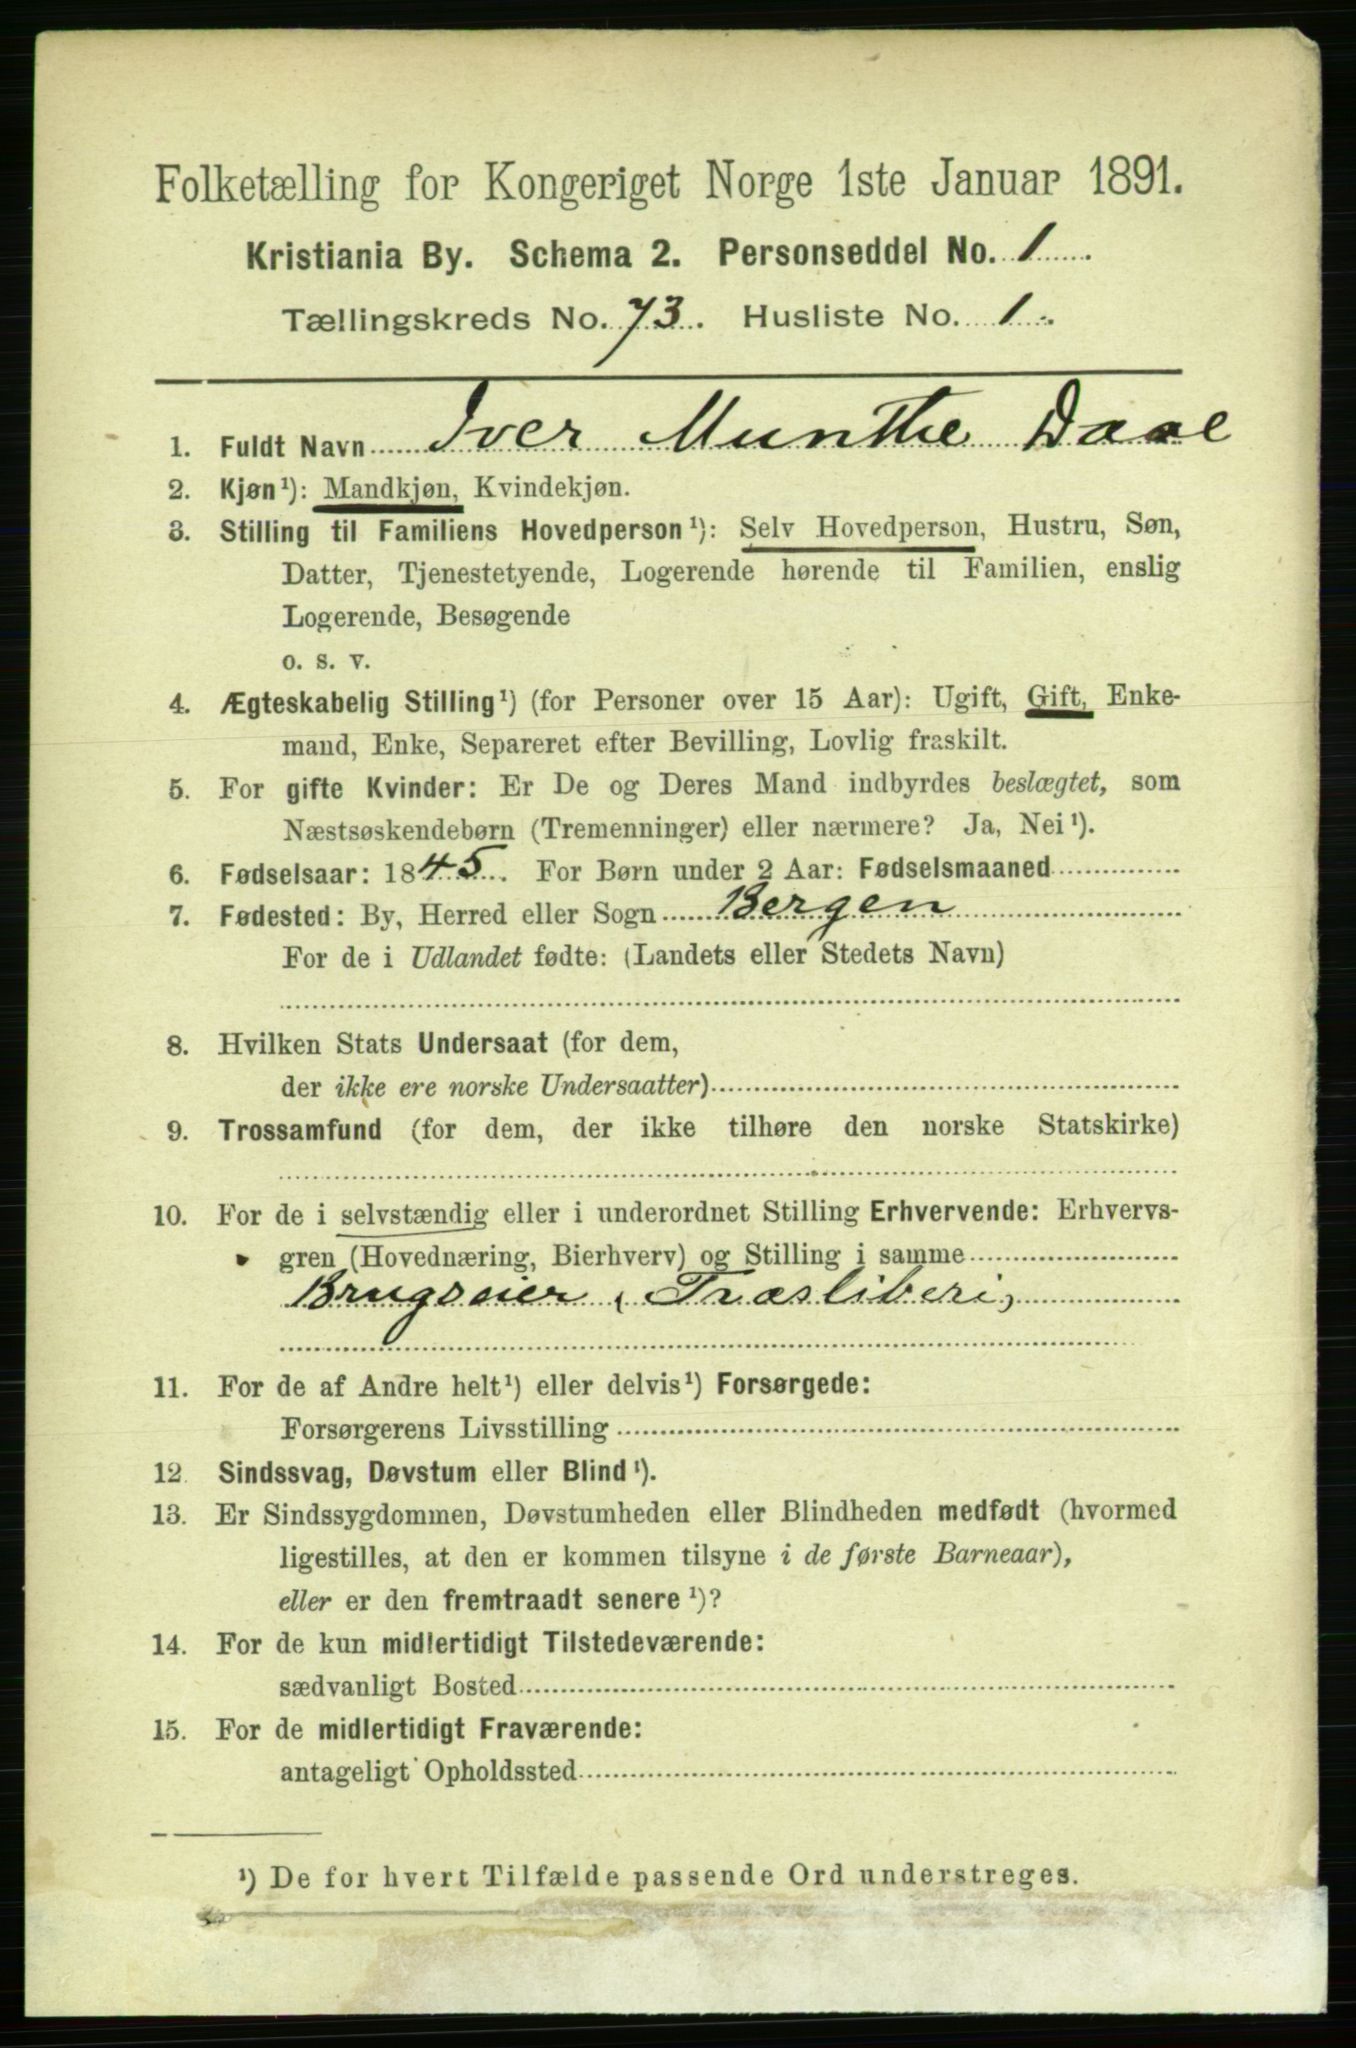 Folketælling for Kongeriget Norge 1ste Januar 1891.
Kristiania By. Schema 2. Personseddel No. 1.
Tællingskreds No. 73. Husliste No. 1.
1. Fuldt Navn Iver Munthe Daae
2. Kjøn¹): Mandkjøn, Kvindekjøn.
3. Stilling til Familiens Hovedperson¹): Selv Hovedperson, Hustru, Søn,
Datter, Tjenestetyende, Logerende hørende til Familien, enslig
Logerende, Besøgende
o. s. v.
4. Ægteskabelig Stilling¹) (for Personer over 15 Aar): Ugift, Gift, Enke-
mand, Enke, Separeret efter Bevilling, Lovlig fraskilt.
5. For gifte Kvinder: Er De og Deres Mand indbyrdes beslægtet, som
Næstsøskendebørn (Tremenninger) eller nærmere? Ja, Nei¹).
6. Fødselsaar: 1845. For Børn under 2 Aar: Fødselsmaaned
7. Fødested: By, Herred eller Sogn Bergen
For de i Udlandet fødte: (Landets eller Stedets Navn)
8. Hvilken Stats Undersaat (for dem,
der ikke ere norske Undersaatter)
9. Trossamfund (for dem, der ikke tilhøre den norske Statskirke)
10. For de i selvstændig eller i underordnet Stilling Erhvervende: Erhvervs-
gren (Hovednæring, Bierhverv) og Stilling i samme
Brugseier (Træsliberi)
11. For de af Andre helt¹) eller delvis¹) Forsørgede:
Forsørgerens Livsstilling
12. Sindssvag, Døvstum eller Blind¹).
13. Er Sindssygdommen, Døvstumheden eller Blindheden medfødt (hvormed
ligestilles, at den er kommen tilsyne i de første Barneaar),
eller er den fremtraadt senere¹)?
14. For de kun midlertidigt Tilstedeværende:
sædvanligt Bosted
15. For de midlertidigt Fraværende:
antageligt Opholdssted
¹) De for hvert Tilfælde passende Ord understreges.